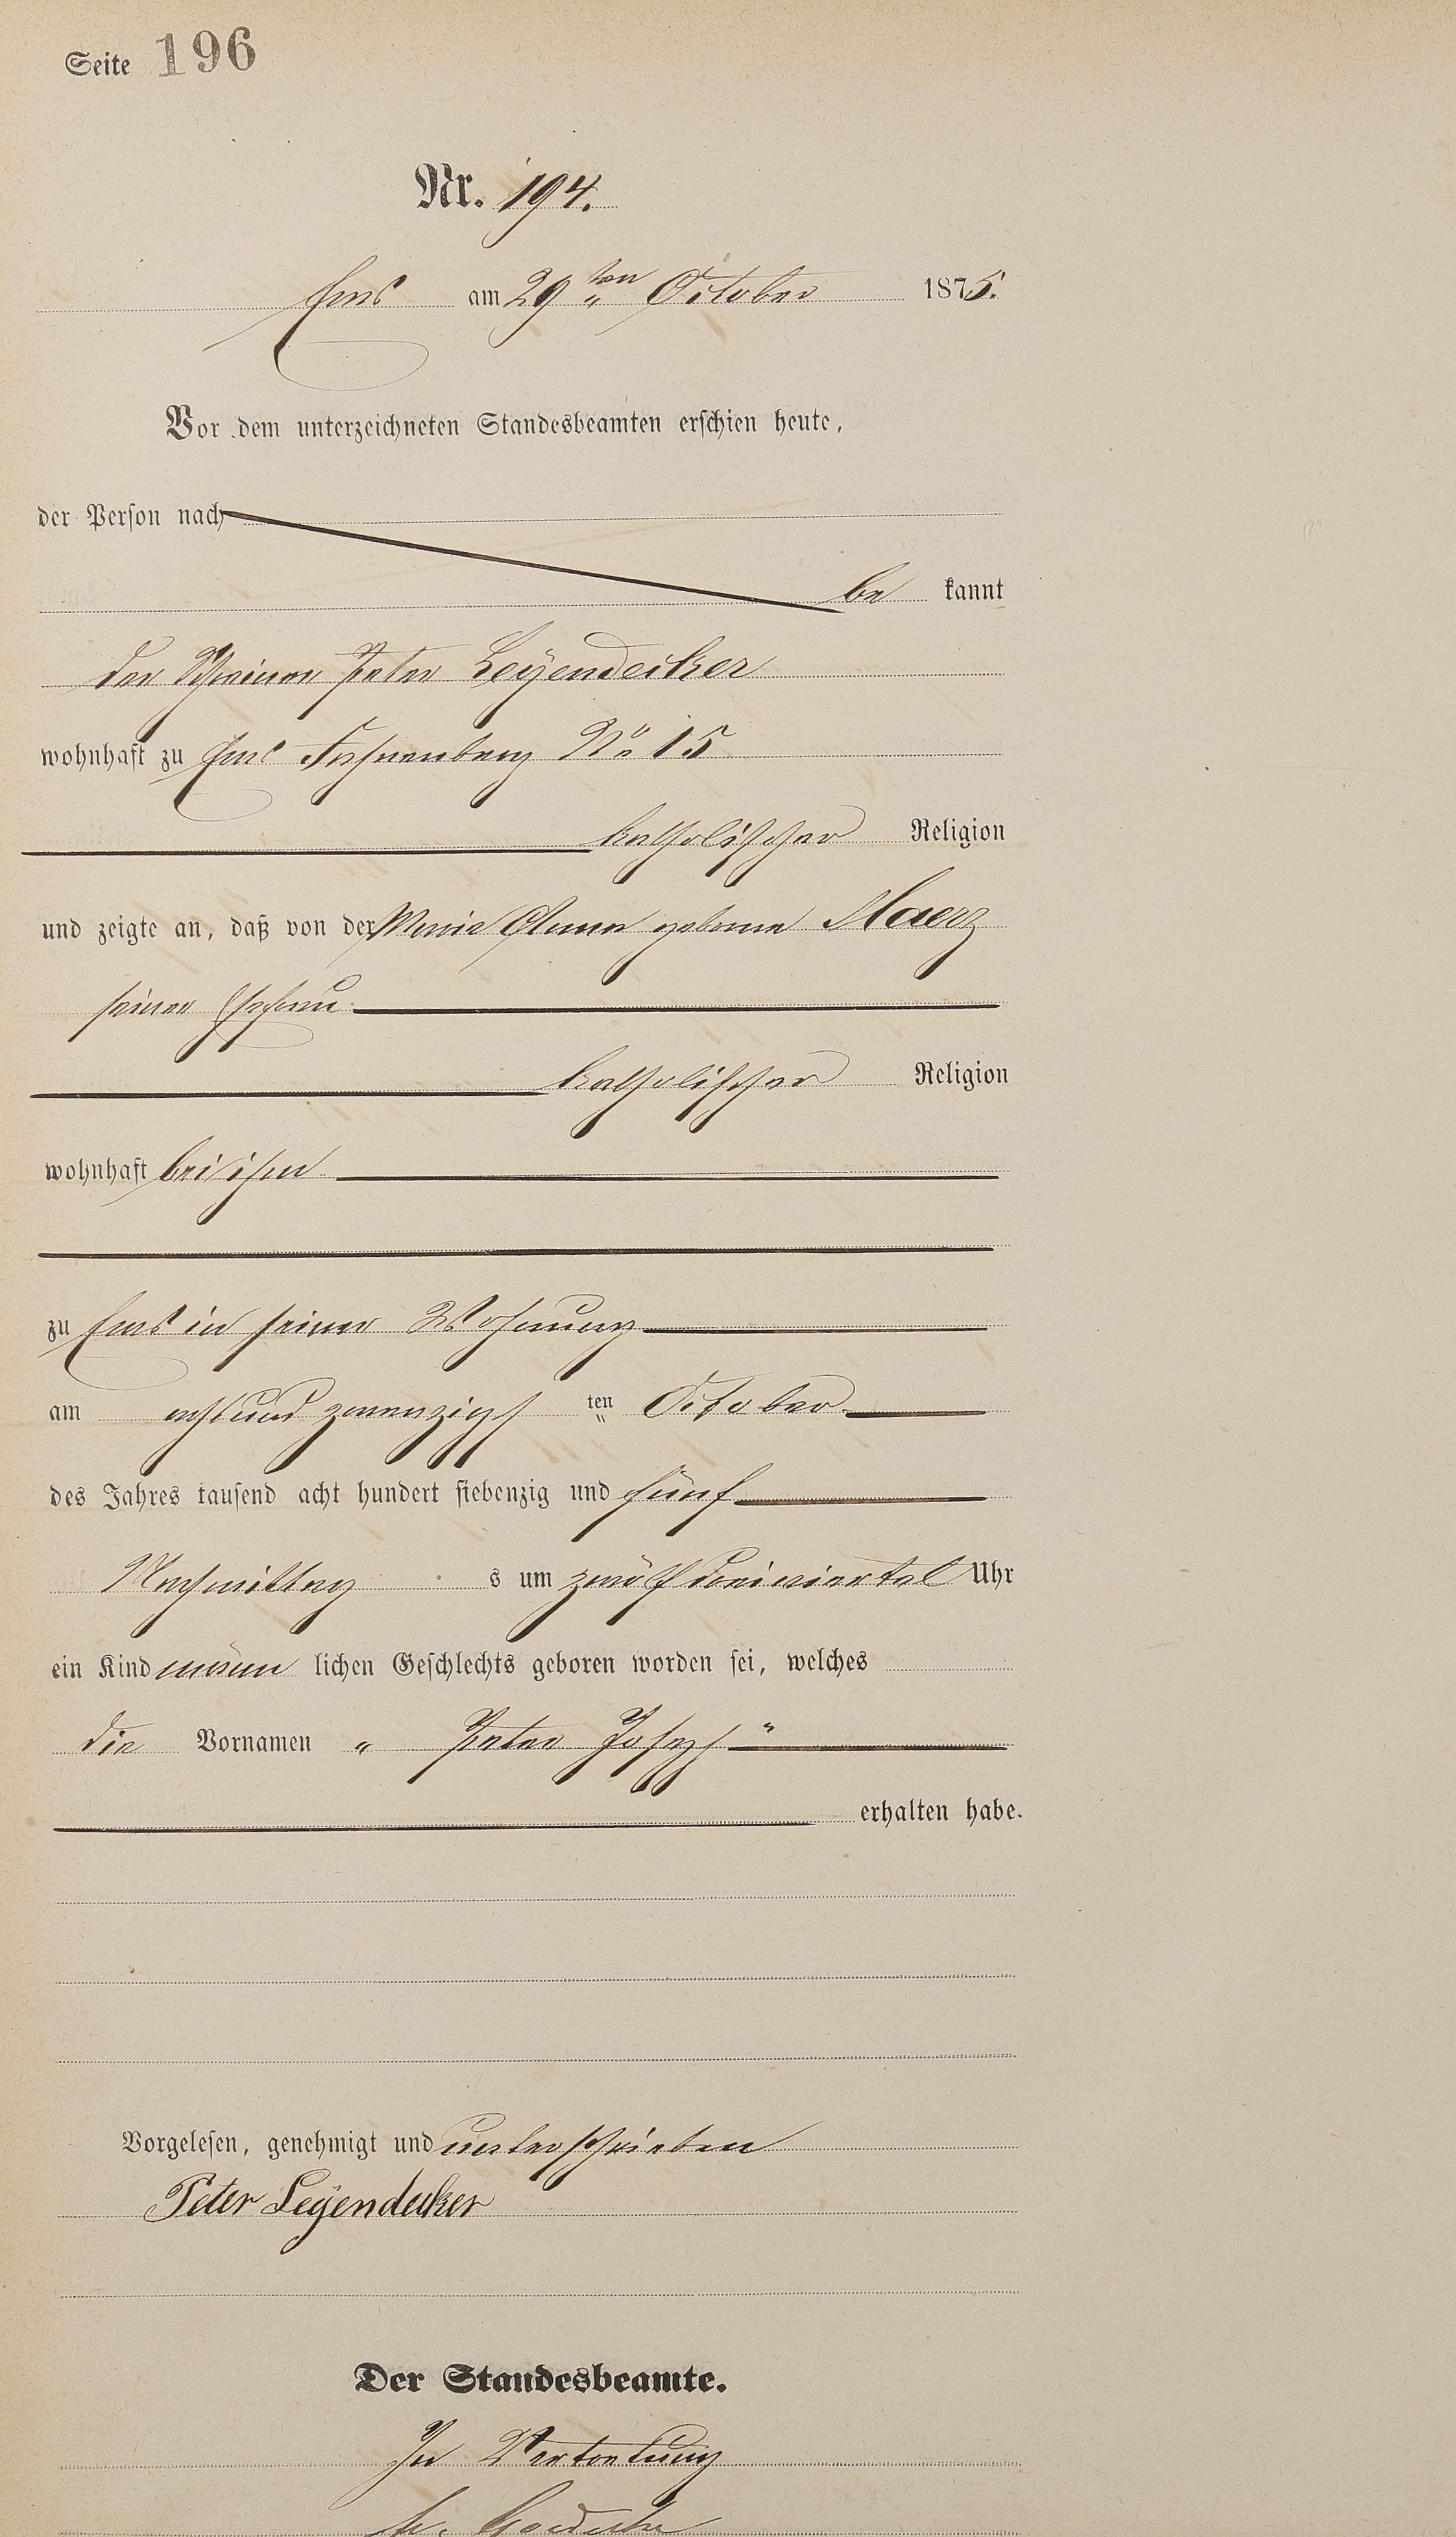 Seite 196
Nr. 194.
Ems am 29ten October 1875.
Vor dem unterzeichneten Standesbeamten erschien heute,
der Person nach
be kannt
der Schreiner Peter Leÿendecker
wohnhaft zu Ems No 15
katholischer Religion
und zeigte an, daß von der Maria Anna geborne Maerz
seiner Ehefrau
katholischer Religion
wohnhaft bei ihm
zu Ems in seiner Wohnung
am acht und zwanzigst ten October
des Jahres tausend acht hundert siebenzig und fünf
Nachmittag s um zwölf dreiviertel Uhr
ein Kind männ lichen Geschlechts geboren worden sei, welches
die Vornamen „ Peter Joseph "
erhalten habe.
Vorgelesen, genehmigt und unterschrieben
Peter Leÿendecker
Der Standesbeamte.
In Vertretung